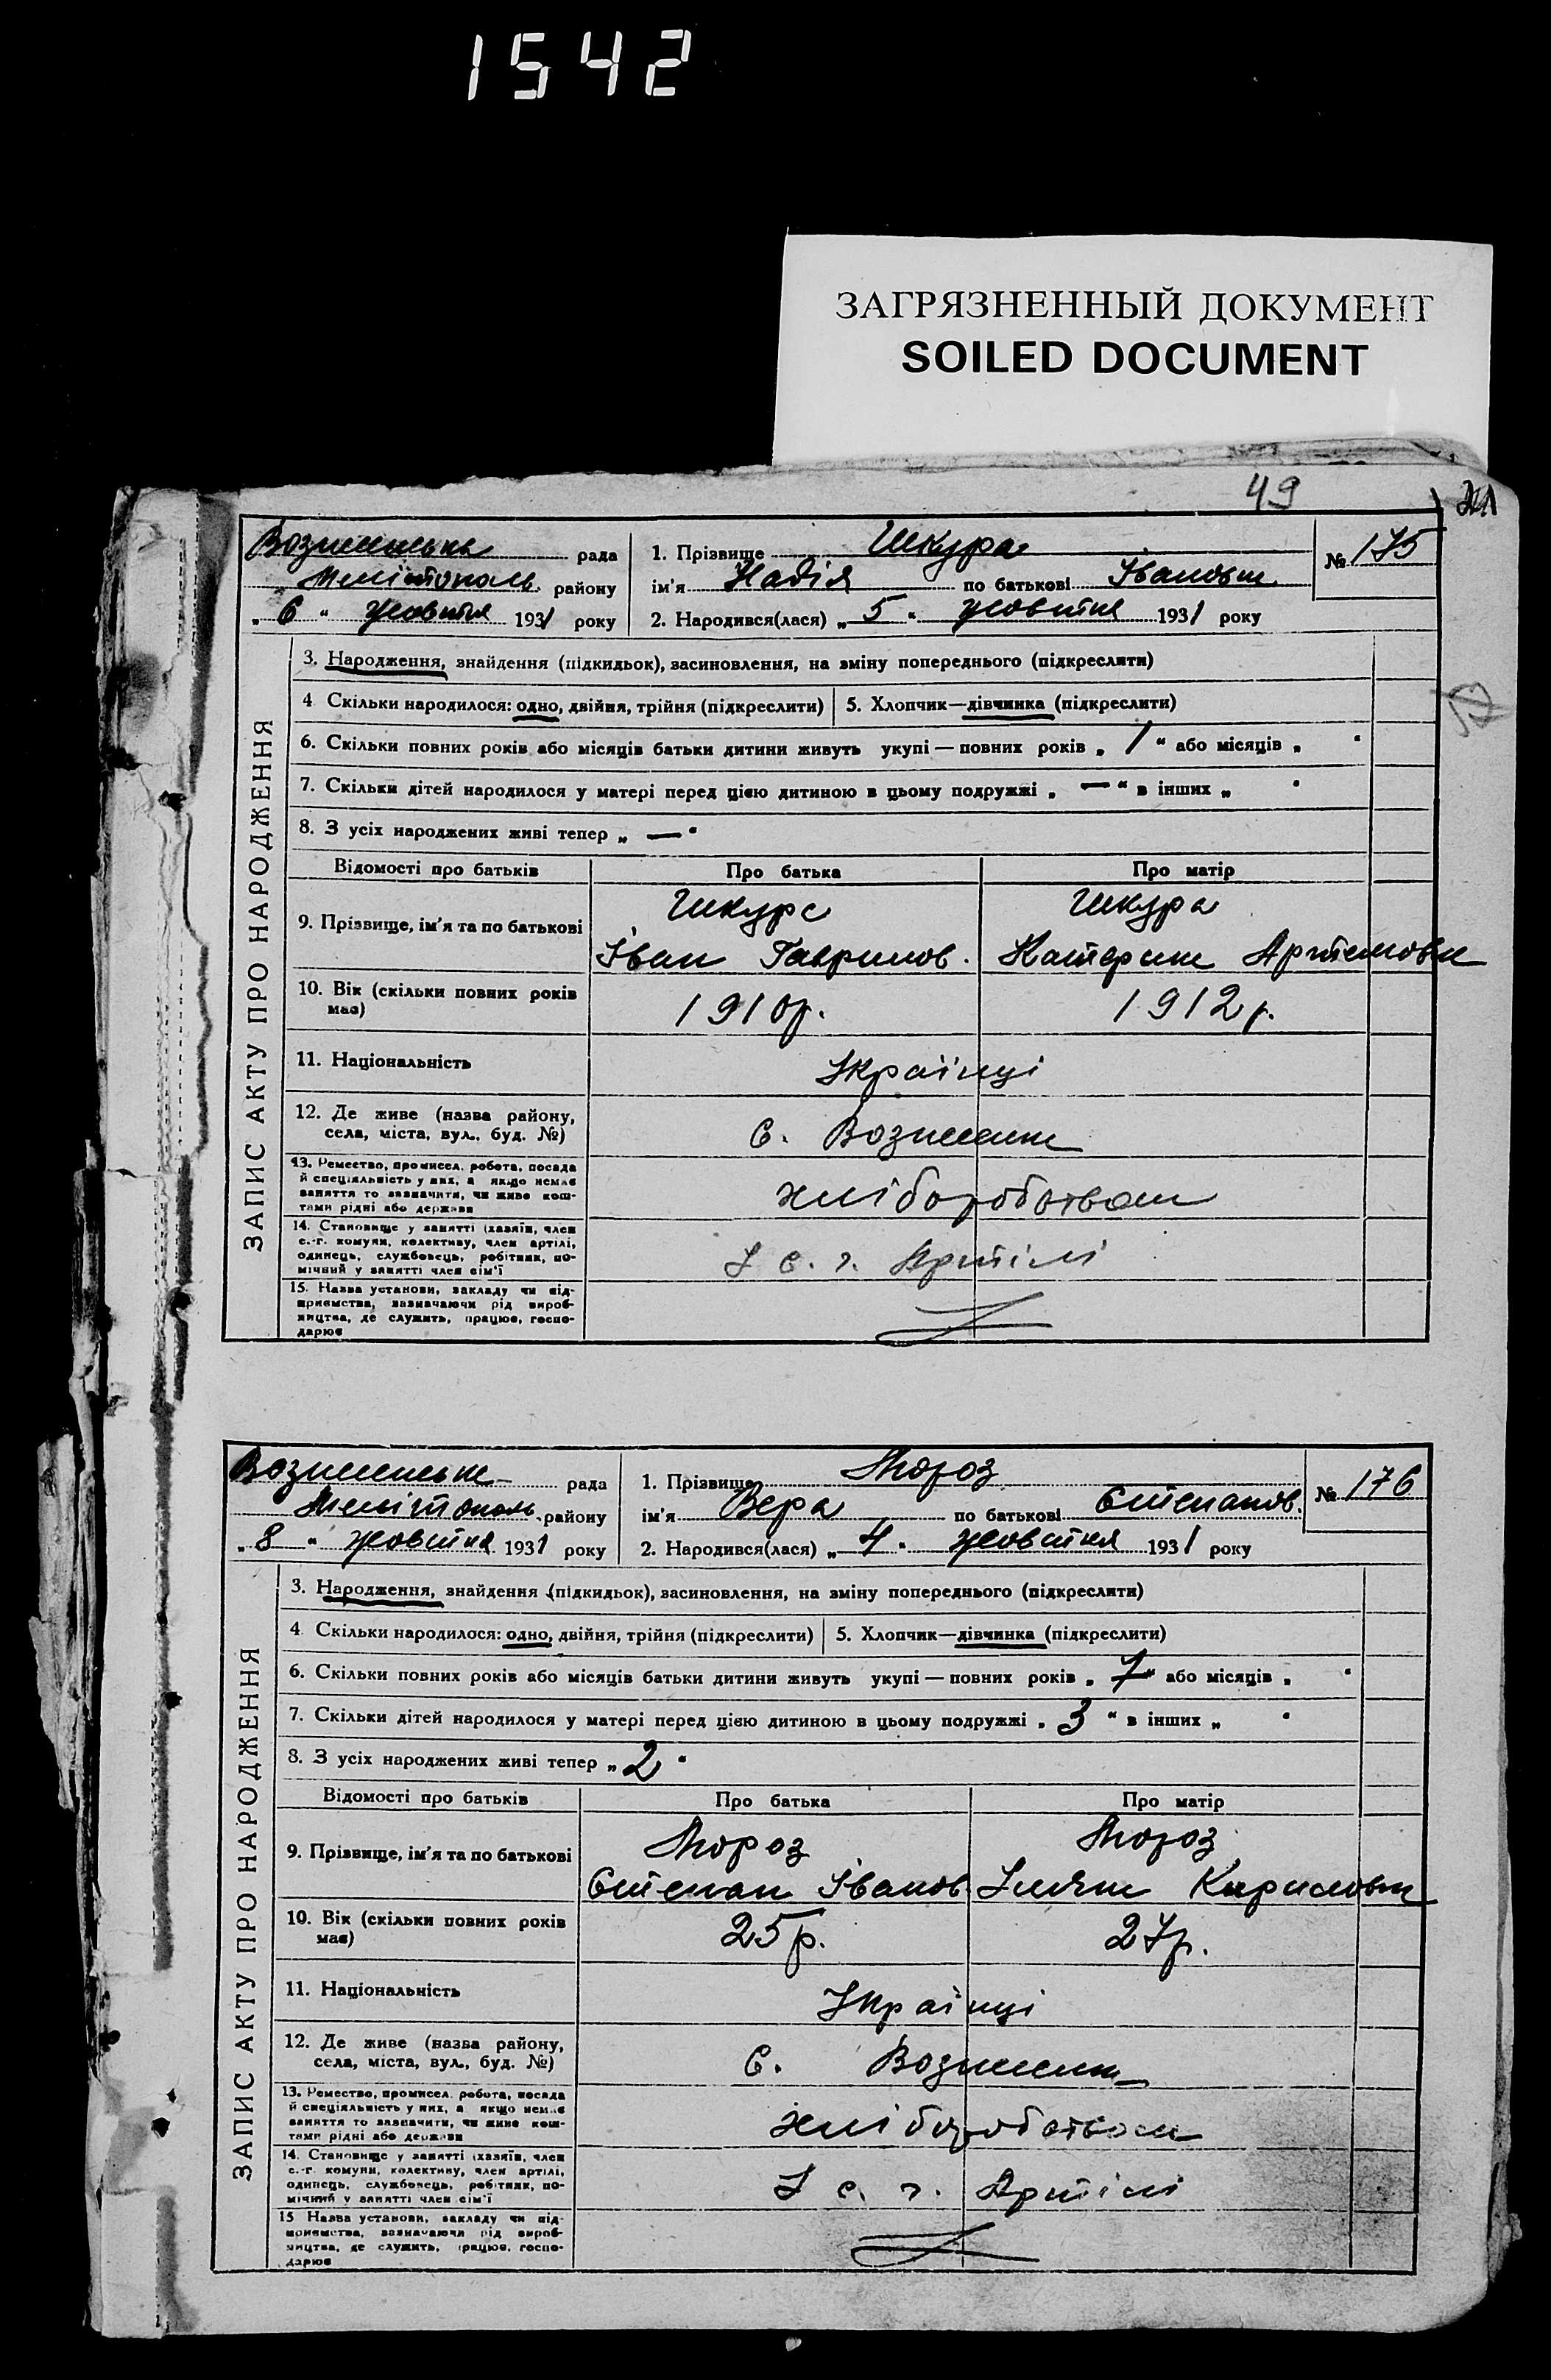 1542
ЗАГРЯЗНЕННЫЙ ДОКУМЕНТ
SOILED DOCUMENT
49
Вознесенська рада
1. Прізвище Шкура
№ 175
Мелітополь району
ім'я Надія по батькові Івановна
„ 6 " жовтня 1931 року
2. Народився(лася) „ 5 " жовтня 1931 року
ЗАПИС АКТУ ПРО НАРОДЖЕННЯ
3. Народження, знайдення (підкидьок), засиновлення, на зміну попереднього (підкреслити)
4 Скільки народилося: одно, двійня, трійня (підкреслити)
5. Хлопчик—дівчинка (підкреслити)
6. Скільки повних років або місяців батьки дитини живуть укупі — повних років „ 1 " або місяців „ "
7. Скільки дітей народилося у матері перед цією дитиною в цьому подружжі „ — " в інших „ "
8. З усіх народжених живі тепер „ — "
Відомості про батьків
Про батька
Про матір
9. Прізвище, ім'я та по батькові
Шкура
Іван Гаврилов.
Шкура
Катерина Артемовна
10. Вік (скільки повних років має)
1910р.
1912р.
11. Національність
Українці
12. Де живе (назва району,
села, міста, вул., буд. №)
с. Вознесенка
13. Ремество, промисел, робота, посада
й спеціяльність у них, а якщо немає
заняття то зазначити, чи живе кош-
тами рідні або держави
хліборобством
14. Становище у занятті (хазяїн, член
с.-г. комуни, колективу, член артілі,
одинець, службовець, робітник, по-
мічний у занятті член сім'ї
У с. г. Артілі
15. Назва установи, закладу чи під-
приємства, зазначаючи рід вироб-
ництва, де служить, працює, госпо-
дарює
Вознесенська рада
1. Прізвище Мороз
№ 176
Мелітополь району
ім'я Вера по батькові Степанов.
„ 8 " жовтня 1931 року
2. Народився(лася) „ 4 " жовтня 1931 року
ЗАПИС АКТУ ПРО НАРОДЖЕННЯ
3. Народження, знайдення (підкидьок), засиновлення, на зміну попереднього (підкреслити)
4 Скільки народилося: одно, двійня, трійня (підкреслити)
5. Хлопчик—дівчинка (підкреслити)
6. Скільки повних років або місяців батьки дитини живуть укупі — повних років „ 7 " або місяців „ "
7. Скільки дітей народилося у матері перед цією дитиною в цьому подружжі „ 3 " в інших „ "
8. З усіх народжених живі тепер „ 2 "
Відомості про батьків
Про батька
Про матір
9. Прізвище, ім'я та по батькові
Мороз
Степан Іванов
Мороз
Кириловна
10. Вік (скільки повних років має)
25р.
27р.
11. Національність
Українці
12. Де живе (назва району,
села, міста, вул., буд. №)
с. Вознесенка
13. Ремество, промисел, робота, посада
й спеціяльність у них, а якщо немає
заняття то зазначити, чи живе кош-
тами рідні або держави
хліборобством
14. Становище у занятті (хазяїн, член
с.-г. комуни, колективу, член артілі,
одинець, службовець, робітник, по-
мічний у занятті член сім'ї
У с. г. Артілі
15 Назва установи, закладу чи під-
приємства, зазначаючи рід вироб-
ництва, де служить, працює, госпо-
дарює